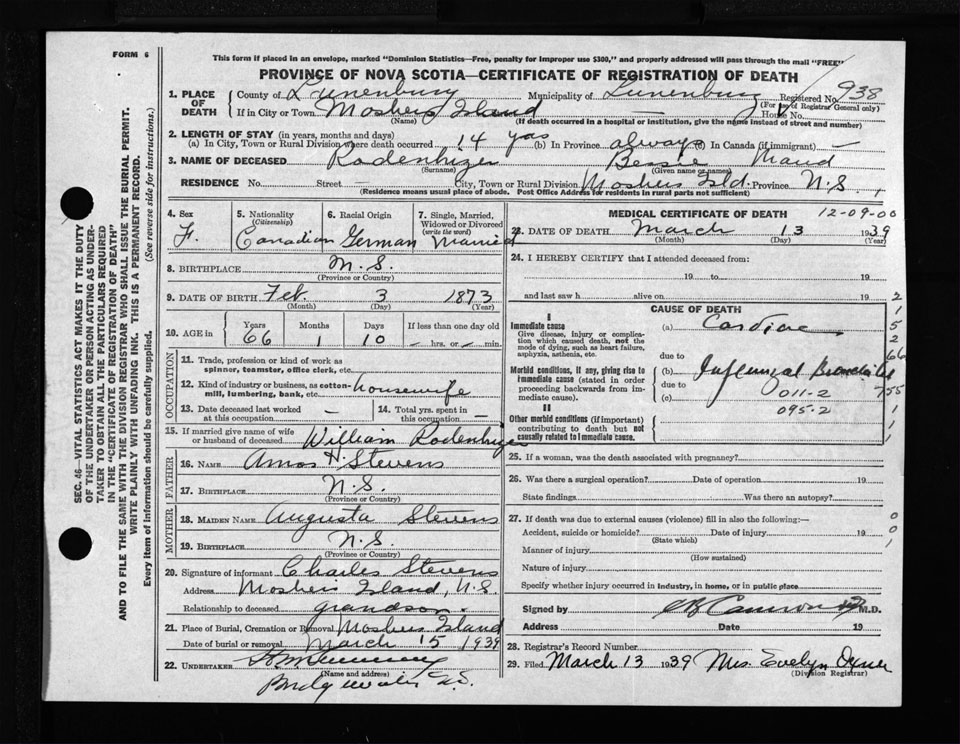 FORM 6
This form if placed in an envelope, marked "Dominion Statistics—Free, penalty for improper use $300," and properly addressed will pass through the mail "FREE"
PROVINCE OF NOVA SCOTIA—CERTIFICATE OF REGISTRATION OF DEATH
1. PLACE OF DEATH
County of Lunenburg Municipality of Lunenburg Registered No. 938
(For use of Registrar General only)
If in City or Town Moshers Island — House No.
(Name) (If death occurred in a hospital or institution, give the name instead of street and number)
2. LENGTH OF STAY (in years, months and days)
(a) In City, Town or Rural Division where death occurred 14 yrs (b) In Province always (c) In Canada (if immigrant) —
3. NAME OF DECEASED Rodenhizer Bessie Maud
(Surname) (Given name or names)
RESIDENCE No. Street City, Town or Rural Division Moshers Isld. Province N.S.
(Residence means usual place of abode. Post Office Address for residents in rural parts not sufficient)
4. Sex F.
5. Nationality (Citizenship) Canadian
6. Racial Origin German
7. Single, Married, Widowed or Divorced (write the word) Married
8. BIRTHPLACE N.S.
(Province or Country)
9. DATE OF BIRTH Feb. 3 1873
(Month) (Day) (Year)
10. AGE in Years Months Days If less than one day old
66 1 10 — hrs. or — min.
OCCUPATION
11. Trade, profession or kind of work as spinner, teamster, office clerk, etc.
12. Kind of industry or business, as cotton-mill, lumbering, bank, etc. housewife
13. Date deceased last worked at this occupation —
14. Total yrs. spent in this occupation —
15. If married give name of wife or husband of deceased William Rodenhizer
FATHER
16. NAME Amos H. Stevens
17. BIRTHPLACE N.S.
(Province or Country)
MOTHER
18. MAIDEN NAME Augusta Stevens
19. BIRTHPLACE N.S.
(Province or Country)
20. Signature of informant Charles Stevens
Address Moshers Island, N.S.
Relationship to deceased grandson.
21. Place of Burial, Cremation or Removal Moshers Island
Date of burial or removal March 15 1939
22. UNDERTAKER
(Name and address)
Bridgewater N.S.
MEDICAL CERTIFICATE OF DEATH 12-09-00
23. DATE OF DEATH March 13 1939
(Month) (Day) (Year)
24. I HEREBY CERTIFY that I attended deceased from:
19 to 19
and last saw h alive on 19
CAUSE OF DEATH
I
Immediate cause
Give disease, injury or complication which caused death, not the mode of dying, such as heart failure, asphyxia, asthenia, etc.
(a) Cardiac
due to
Morbid conditions, if any, giving rise to immediate cause (stated in order proceeding backwards from immediate cause).
(b) Influenzal Bronchitis
due to
(c) 011-2
095-2
II
Other morbid conditions (if important) contributing to death but not causally related to immediate cause.
25. If a woman, was the death associated with pregnancy?
26. Was there a surgical operation? Date of operation 19
State findings Was there an autopsy?
27. If death was due to external causes (violence) fill in also the following:—
Accident, suicide or homicide? Date of injury 19
(State which)
Manner of injury
(How sustained)
Nature of injury
Specify whether injury occurred in industry, in home, or in public place
Signed by M.D.
Address Date 19
28. Registrar's Record Number
29. Filed March 13 1939 Mrs. Evelyn
(Division Registrar)
2
1
5
2
66
755
1
1
1
0
0
1
SEC. 46—VITAL STATISTICS ACT MAKES IT THE DUTY
OF THE UNDERTAKER OR PERSON ACTING AS UNDER-
TAKER TO OBTAIN ALL THE PARTICULARS REQUIRED
IN THE "CERTIFICATE OF REGISTRATION OF DEATH"
AND TO FILE THE SAME WITH THE DIVISION REGISTRAR WHO SHALL ISSUE THE BURIAL PERMIT.
WRITE PLAINLY WITH UNFADING INK. THIS IS A PERMANENT RECORD.
Every item of information should be carefully supplied. (See reverse side for instructions.)